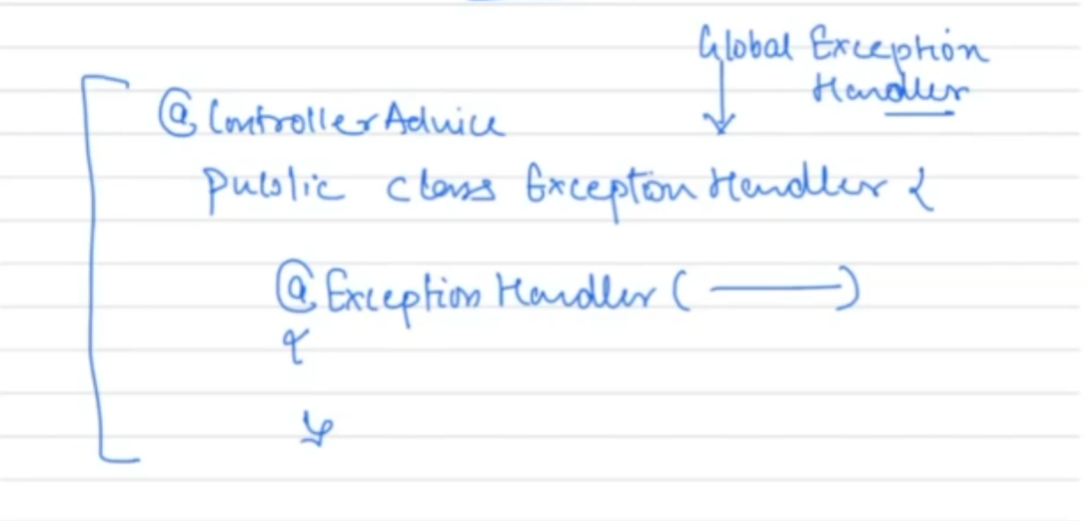 Global Exception
Handler
@ControllerAdvice
public class ExceptionHandler {
@ExceptionHandler( — )
{
}